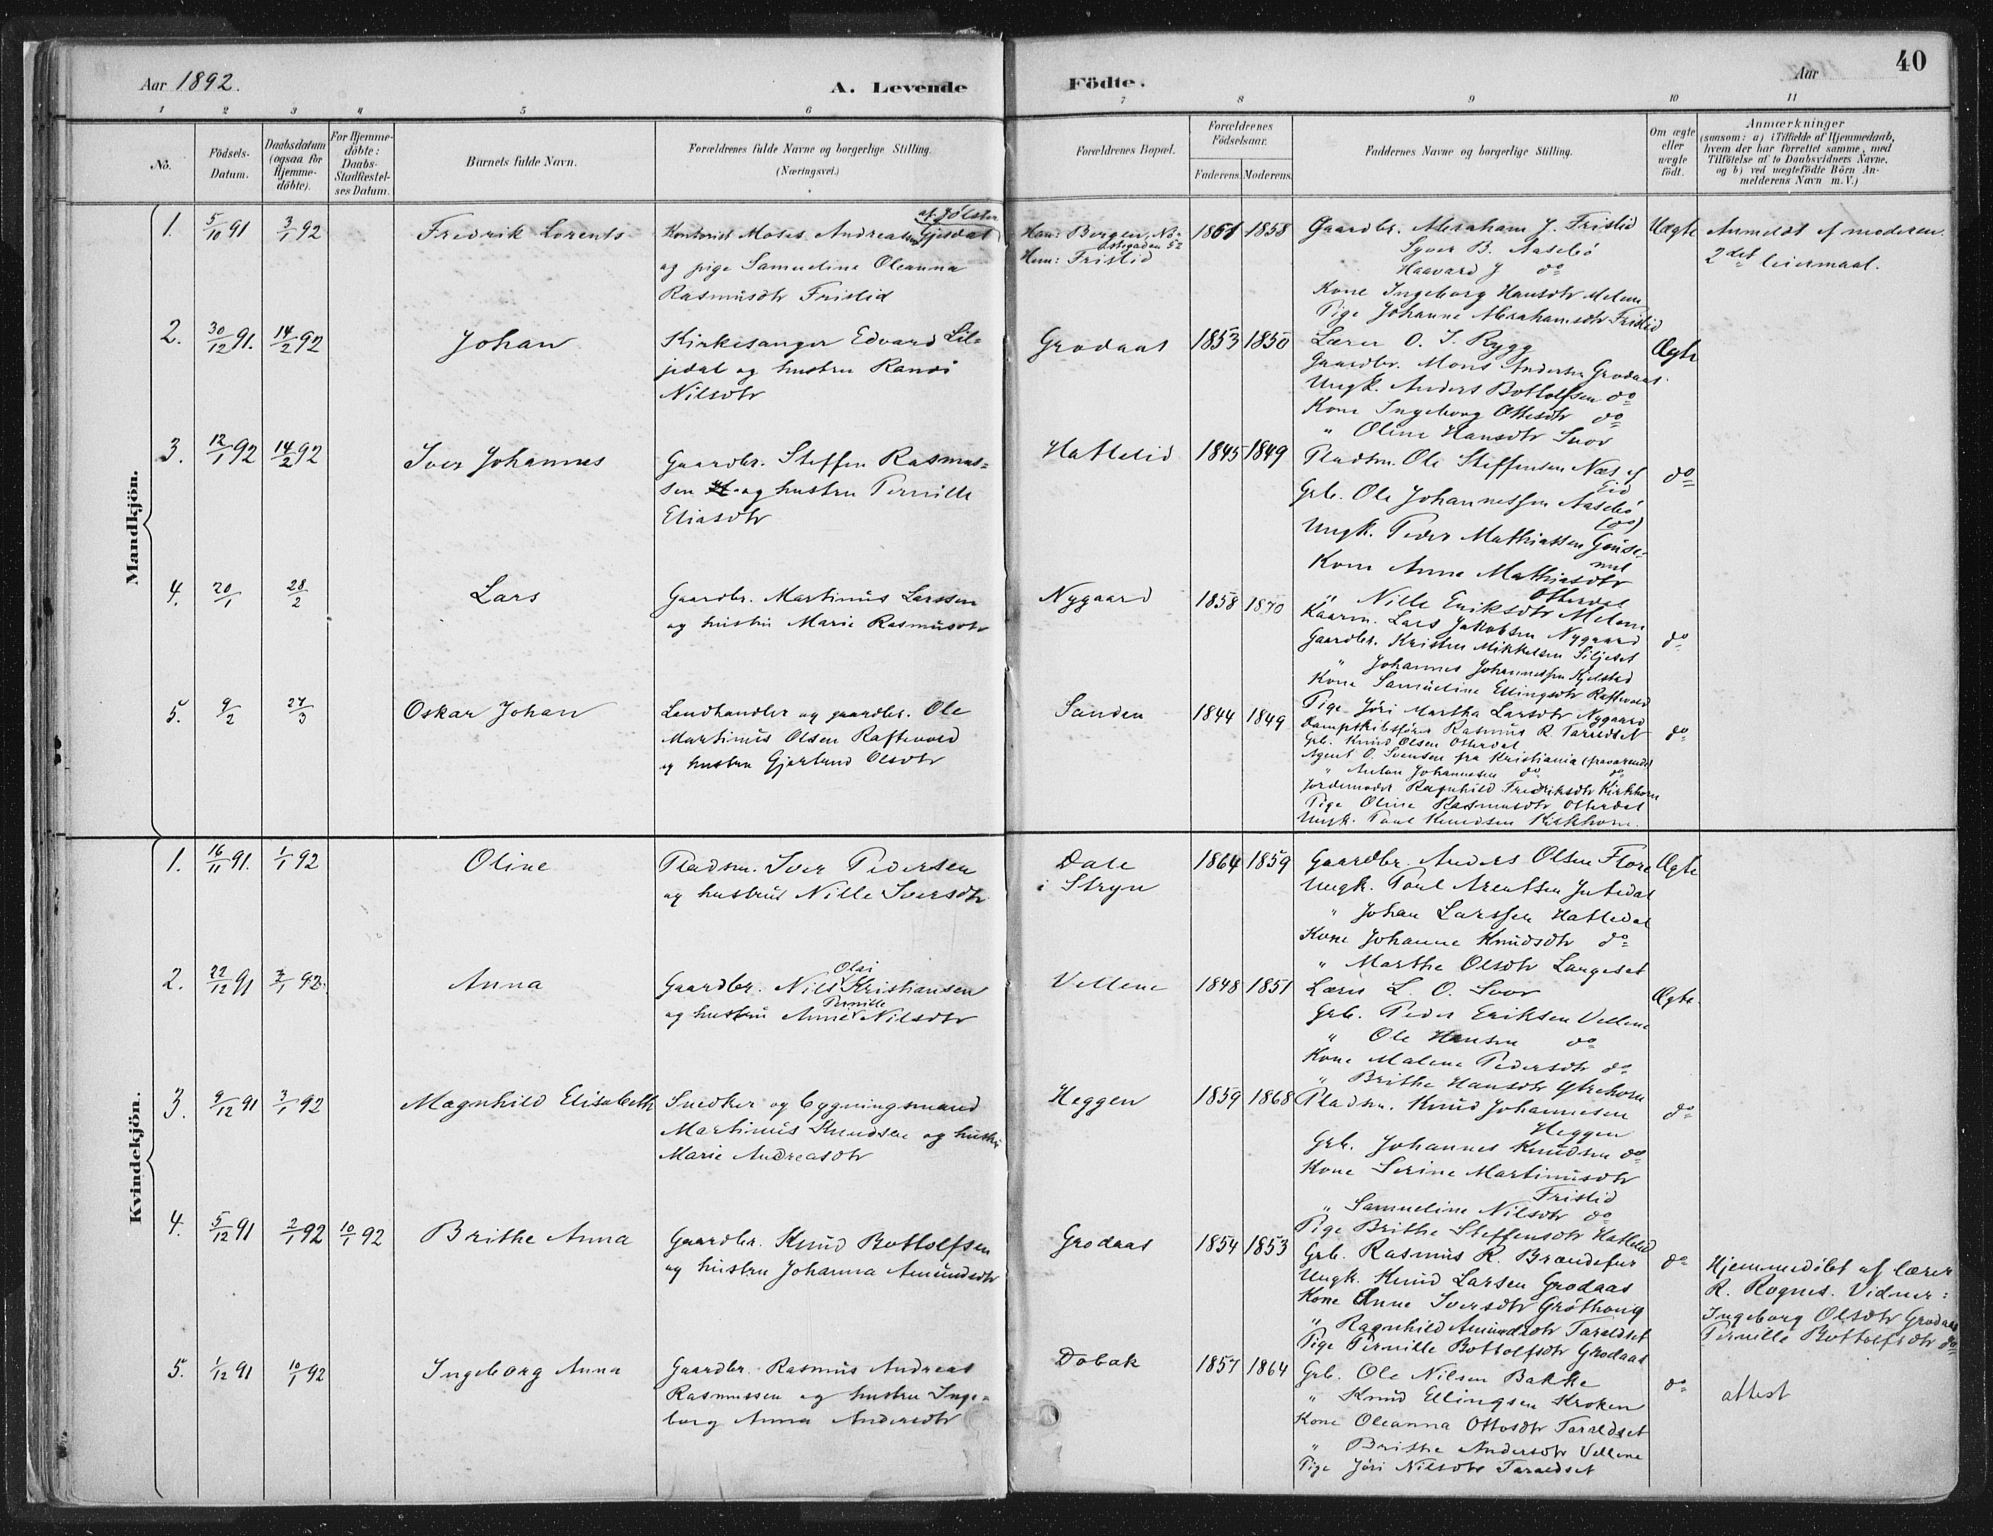 Aar 1892.
A. Levende
Födte.
Aar
40
1 2 3 4 5 6 7 8 9 10 11
No.
Födsels-Datum.
Daabsdatum (ogsaa for Hjemme-döbte).
For Hjemme-döbte: Daabs-Stadfæstel-ses Datum.
Barnets fulde Navn.
Forældrenes fulde Navne og borgerlige Stilling. (Næringsvei.)
Forældrenes Bopæl.
Forældrenes Födselsaar.
Faderens. Moderens.
Faddernes Navne og borgerlige Stilling.
Om ægte eller uægte födt.
Anmærkninger
(saasom: a) i Tilfælde af Hjemmedaab,
hvem der har forrettet samme, med
Tilföielse af to Daabsvidners Navne,
og b) ved uægtefödte Börn An-
melderens Navn m. V.)
Mandkjön.
1. 5/10 91 3/1 92 Fredrik Lorents
Kontorist Moses Andreassen Gjesdal
af Jölster
og pige Samueline Oleanna
Rasmusdtr Fristid
Han: Bergen, No-
stegaden 52
Hun: Fristid
1861 1858
Gaardbr. Abraham J. Fristid
Syver B. Aasebö
Haavard J do
Kone Ingeborg Hansdtr Melem
Pige Johanne Abrahamsdtr Fristid
Uægte
Anmeldt af moderen.
2det leiermaal.
2. 30/12 91. 14/2 92 Johan
Kirkesanger Edvard Lil-
jedal og hustru Randi
Nilsdtr
Grodaas
1853 1850
Lærer O. I. Rygg
Gaardbr. Mons Andersen Grodaas
Ungk. Anders Bottolfsen do
Kone Ingeborg Ottesdtr do
" Oline Hansdtr Svor
Ægte
3. 12/1 92 14/2 92 Iver Johannes
Gaardbr. Steffen Rasmus-
sen og hustru Pernille
Eliasdtr
Hattelid
1845 1849
Pladsm. Ole Steffensen Næs af
Eid
Grb. Ole Johannessen Aasebö
(do)
Ungk. Peder Mathiassen Gause-
mel
Kone Anna Mathiasdtr
Otterdal
" Nille Eriksdtr Melem
do
4. 20/1 28/2 Lars
Gaardbr. Martinus Larssen
og hustru Marie Rasmusdtr
Nygaard
1858 1870
Kaarm. Lars Jakobsen Nygaard
Gaardbr. Kristen Mikkelsen Siljeset
" Johannes Johannessen Kjelstad
Kone Samueline Ellingsdtr Raftevold
Pige Jöri Martha Larsdtr Nygaard
do
5. 9/2 27/3 Oskar Johan
Landhandler og gaardbr. Ole
Martinus Olsen Raftevold
og hustru Gjertrud Olsdtr
Sanden
1844 1849
Dampskibsförer Rasmus R. Taraldset
Grb. Knud Olsen Otterdal
Agent O. Svensen fra Kristiania (fraværende)
" Anton Johannesen do do
Jordemoder Ragnhild Fredriksdtr Kirkhorn
Pige Oline Rasmusdtr Otterdal
Ungk. Paul Knudsen Kirkhorn.
do
Kvindekjön.
1. 16/11 91. 1/1 92 Oline
Pladsm. Iver Pedersen
og hustru Nille Iversdtr
Dale
i Stryn
1864 1859
Gaardbr. Anders Olsen Flore
Ungk. Paul Arentsen Jutedal
" Johan Larssen Hattedal
Kone Johanne Knudsdtr do
" Marthe Olsdtr Langeset
Ægte
2. 22/12 91 3/1 92. Anna
Gaardbr. Nils Olai Kristiansen
og hustru Anne Pernille Nilsdtr
Vellene
1848 1851
Lærer L. O. Svor
Grb. Peder Eriksen Vellene
" Ole Hansen do
Kone Malene Pedersdtr do
" Brithe Hansdtr Ytrehorn
Ægte.
3. 9/12 91 3/1 92 Magnhild Elisabeth
Snedker og bygningsmand
Martinus Knudsen og hustru
Marie Andreasdtr
Heggen
1859 1868
Pladsm. Knud Johannesen
Heggen
Grb. Johannes Knudsen do
Kone Serine Martinusdtr
Fristid
" Samueline Nilsdtr do
Pige Brithe Steffensdtr Hattelid
do
4. 5/12 91 2/1 92 10/1 92 Brithe Anna
Gaardbr. Knud Bottolfsen
og hustru Johanna Amundsdtr
Grodaas
1854 1853
Grb. Rasmus R. Brændefur
Ungk. Knud Larsen Grodaas
Kone Anne Iversdtr Gröthaug
" Ragnhild Amundsdtr Taraldset
Pige Pernille Bottolfsdtr Grodaas
do
Hjemmedöbt af lærer
R. Rognes. Vidner:
Ingeborg Olsdtr Grodaas
Pernille Bottolfsdtr do
5. 1/12 91 10/1 92 Ingeborg Anna
Gaardbr. Rasmus Andreas
Rasmussen og hustru Inge-
borg Anna Andersdtr
Dobak
1857 1864
Grb. Ole Nilsen Bakke
" Knud Ellingsen Kroken
Kone Oleanna Ottosdtr Taraldset
" Brithe Andersdtr Vellene
Pige Jöri Nilsdtr Taraldset
do
attest